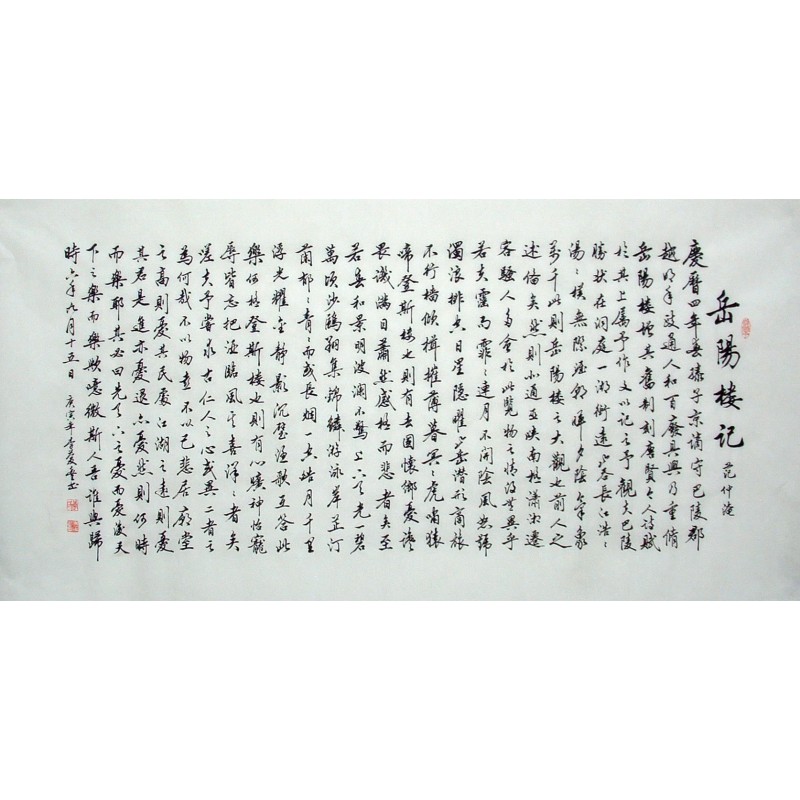 岳陽楼记
范仲淹
慶曆四年春滕子京謫守巴陵郡
越明年政通人和百廢具興乃重脩
岳陽楼增其舊制刻唐賢今人詩賦
於其上属予作文以記之予觀夫巴陵
勝状在洞庭一湖銜遠山吞長江浩〻
湯〻横無際涯朝暉夕陰氣象
萬千此則岳陽楼之大觀也前人之
述備矣然則北通巫峡南極瀟湘遷
客騷人多會於此覽物之情得無異乎
若夫霪雨霏〻連月不開陰風怒號
濁浪排空日星隱曜山岳潜形商旅
不行檣傾楫摧薄暮冥〻虎嘯猿
啼登斯楼也則有去国懷鄉憂讒
畏譏滿目蕭然感極而悲者矣至
若春和景明波澜不驚上下天光一碧
萬頃沙鷗翔集錦鱗游泳岸芷汀
蘭郁〻青〻而或長烟一空皓月千里
浮光耀金静影沉璧漁歌互答此
樂何極登斯楼也則有心曠神怡寵
辱皆忘把酒臨風其喜洋〻者矣
嗟夫予嘗求古仁人之心或異二者之
為何哉不以物喜不以己悲居廟堂
之高則憂其民處江湖之遠則憂
其君是進亦憂退亦憂然則何時
而樂耶其必曰先天下之憂而憂後天
下之樂而樂歟噫微斯人吾誰與歸
時六年九月十五日
庚寅年李